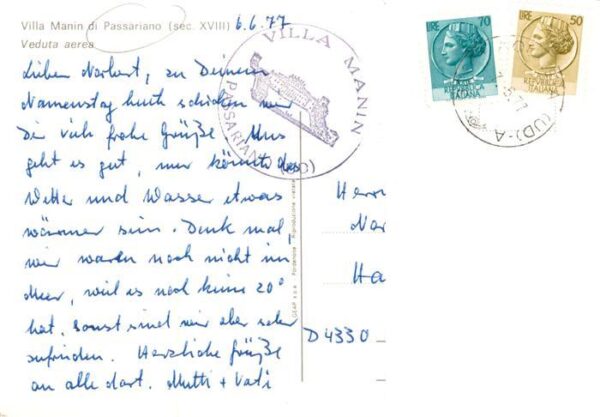 Villa Manin di Passariano (sec. XVIII)
Veduta aerea
6.6.77
Lieben Norbert, zu Deinem
Namenstag heute schicken wir
Dir viele frohe Grüße. Uns
geht es gut, nur könnte das
Wetter und Wasser etwas
wärmer sein. Denk mal,
wir waren noch nicht im
Meer, weil es noch keine 20°
hat, sonst sind wir aber sehr
zufrieden. Herzliche Grüße
an alle dort. Mutti + Vati
VILLA MANIN
PASSARIANO (UD)
LIRE 70
REPUBBLICA
ITALIANA
LIRE 50
REPUBBLICA
ITALIANA
(UD)-A
Herrn
Nor
Ha
D 4330